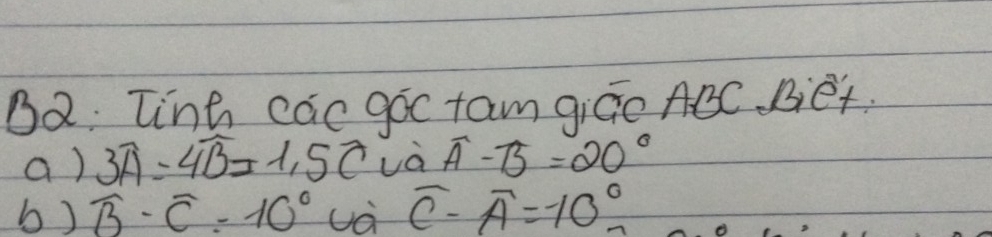 B2: Tính các góc tam giác ABC. Biết.
a) 3Â = 4B̂ = 1,5Ĉ và Â - B̂ = 20°
b) B̂ - Ĉ = 10° và Ĉ - Â = 10°